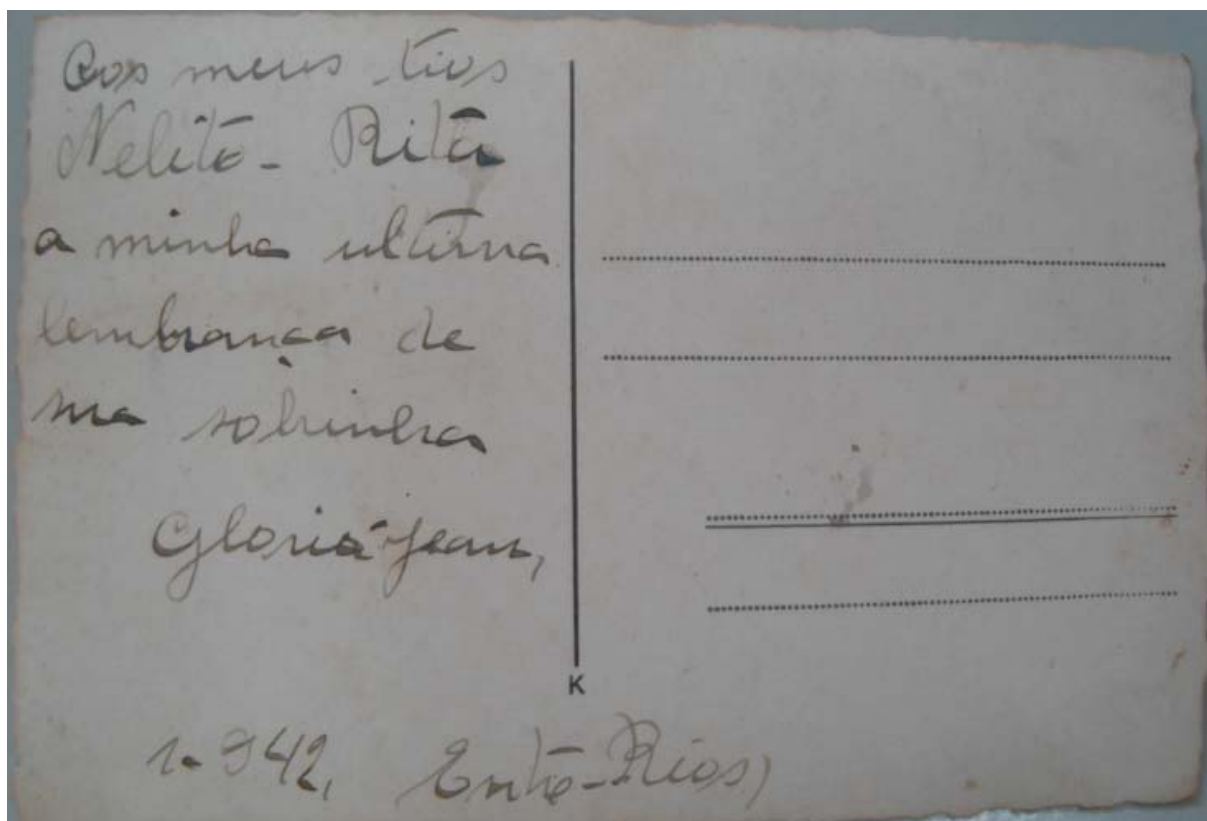 Aos meus tios
Nelito - Rita
a minha ultima
lembrança de
sua sobrinha
Gloria-Jean,
K
1-942, Entre-Rios,